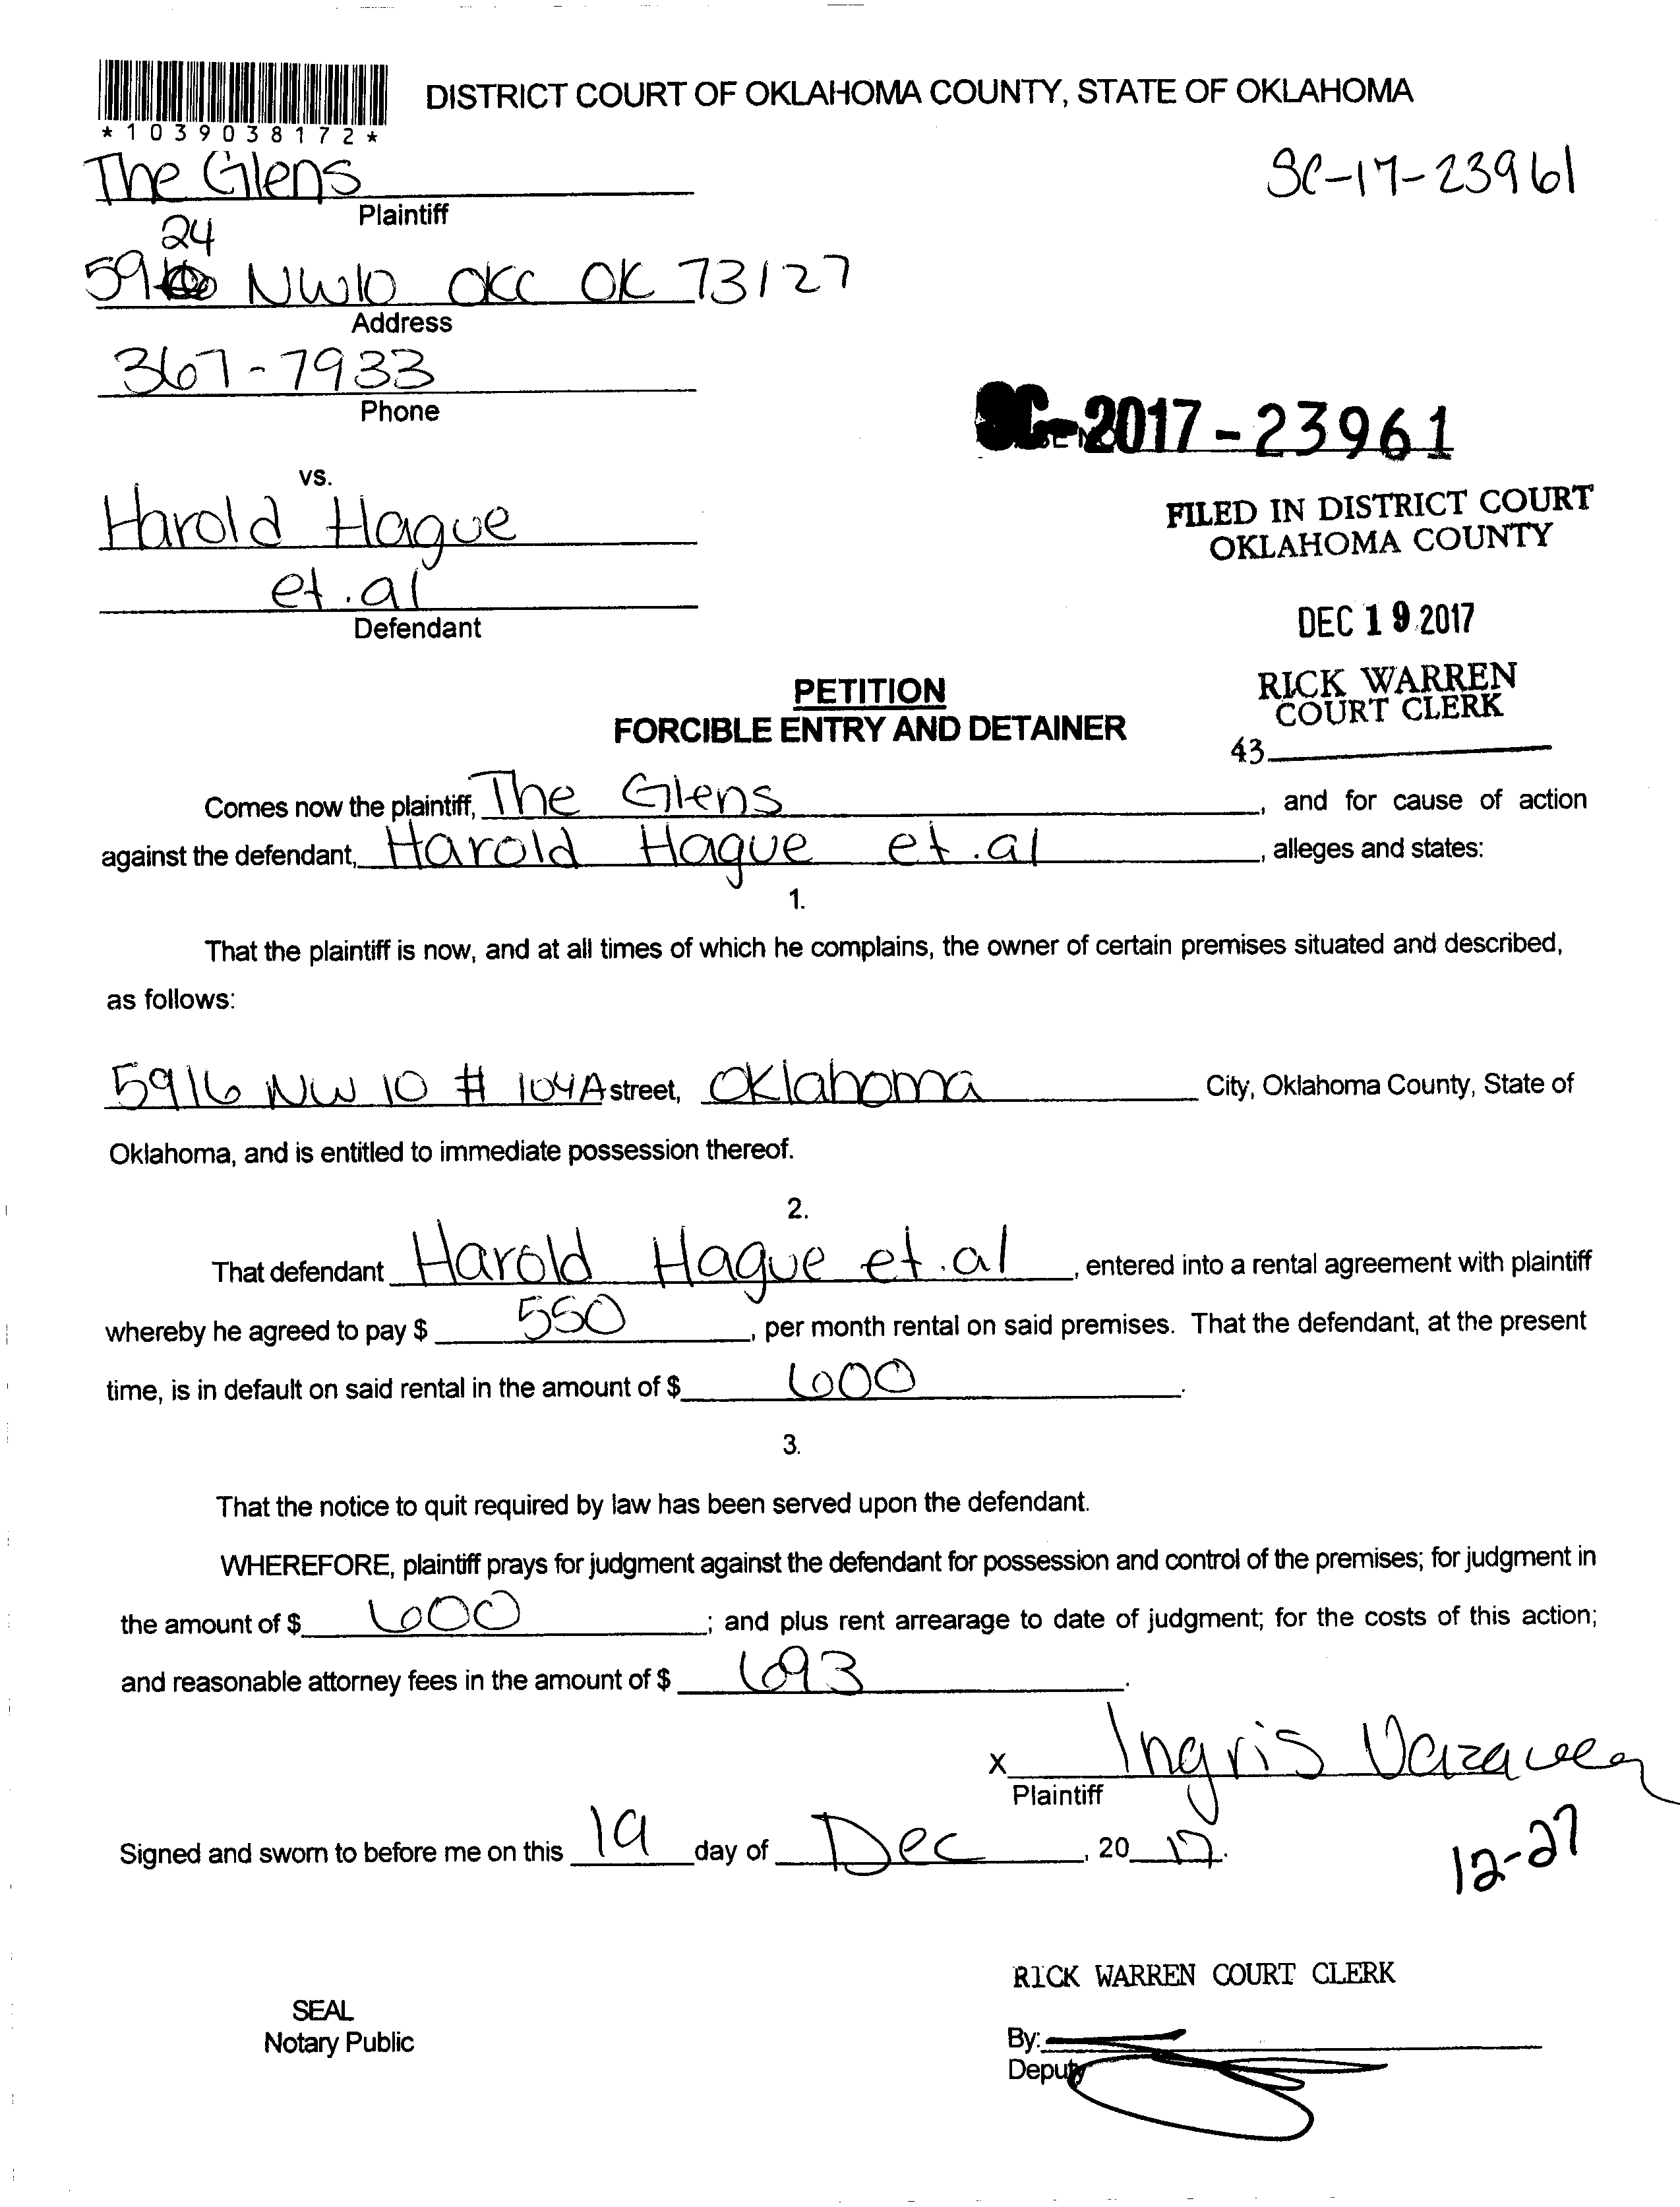 DISTRICT COURT OF OKLAHOMA COUNTY, STATE OF OKLAHOMA
*1039038172*
The Glens
SC-17-23961
Plaintiff
24
59 NW10 OKC OK 73127
Address
367-7933
Phone
SC-2017-23961
vs.
Harold Hague
et.al
Defendant
FILED IN DISTRICT COURT
OKLAHOMA COUNTY
DEC 19 2017
RICK WARREN
COURT CLERK
43
PETITION
FORCIBLE ENTRY AND DETAINER
Comes now the plaintiff, The Glens, and for cause of action
against the defendant, Harold Hague et.al, alleges and states:
1.
That the plaintiff is now, and at all times of which he complains, the owner of certain premises situated and described,
as follows:
5916 NW 10 # 104A street, Oklahoma City, Oklahoma County, State of
Oklahoma, and is entitled to immediate possession thereof.
2.
That defendant Harold Hague et.al, entered into a rental agreement with plaintiff
whereby he agreed to pay $ 550, per month rental on said premises. That the defendant, at the present
time, is in default on said rental in the amount of $ 600.
3.
That the notice to quit required by law has been served upon the defendant.
WHEREFORE, plaintiff prays for judgment against the defendant for possession and control of the premises; for judgment in
the amount of $ 600; and plus rent arrearage to date of judgment; for the costs of this action;
and reasonable attorney fees in the amount of $ 693.
x Ingris
Plaintiff
Signed and sworn to before me on this 19 day of Dec, 2017.
12-27
RICK WARREN COURT CLERK
SEAL
Notary Public
By:
Deputy